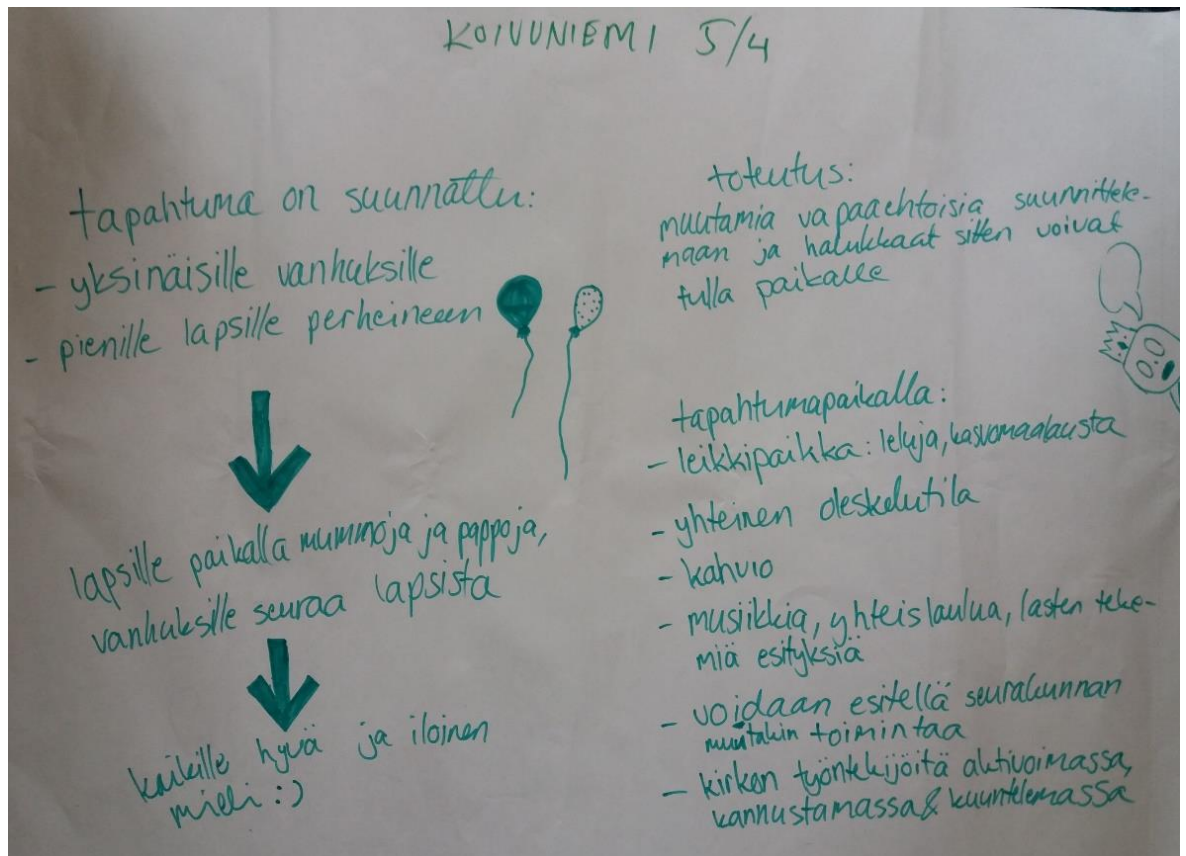 KOIVUNIEMI 5/4
tapahtuma on suunnattu:
- yksinäisille vanhuksille
- pienille lapsille perheineen
lapsille paikalla mummoja ja pappoja,
vanhuksille seuraa lapsista
kaikille hyvä ja iloinen
mieli :)
toteutus:
muutamia vapaaehtoisia suunnittele-
maan ja halukkaat sitten voivat
tulla paikalle
tapahtumapaikalla:
- leikkipaikka: leluja, kasvomaalausta
- yhteinen oleskelutila
- kahvio
- musiikkia, yhteislaulua, lasten teke-
miä esityksiä
- voidaan esitellä seurakunnan
muutakin toimintaa
- kirkon työntekijöitä aktivoimassa,
kannustamassa & kuuntelemassa